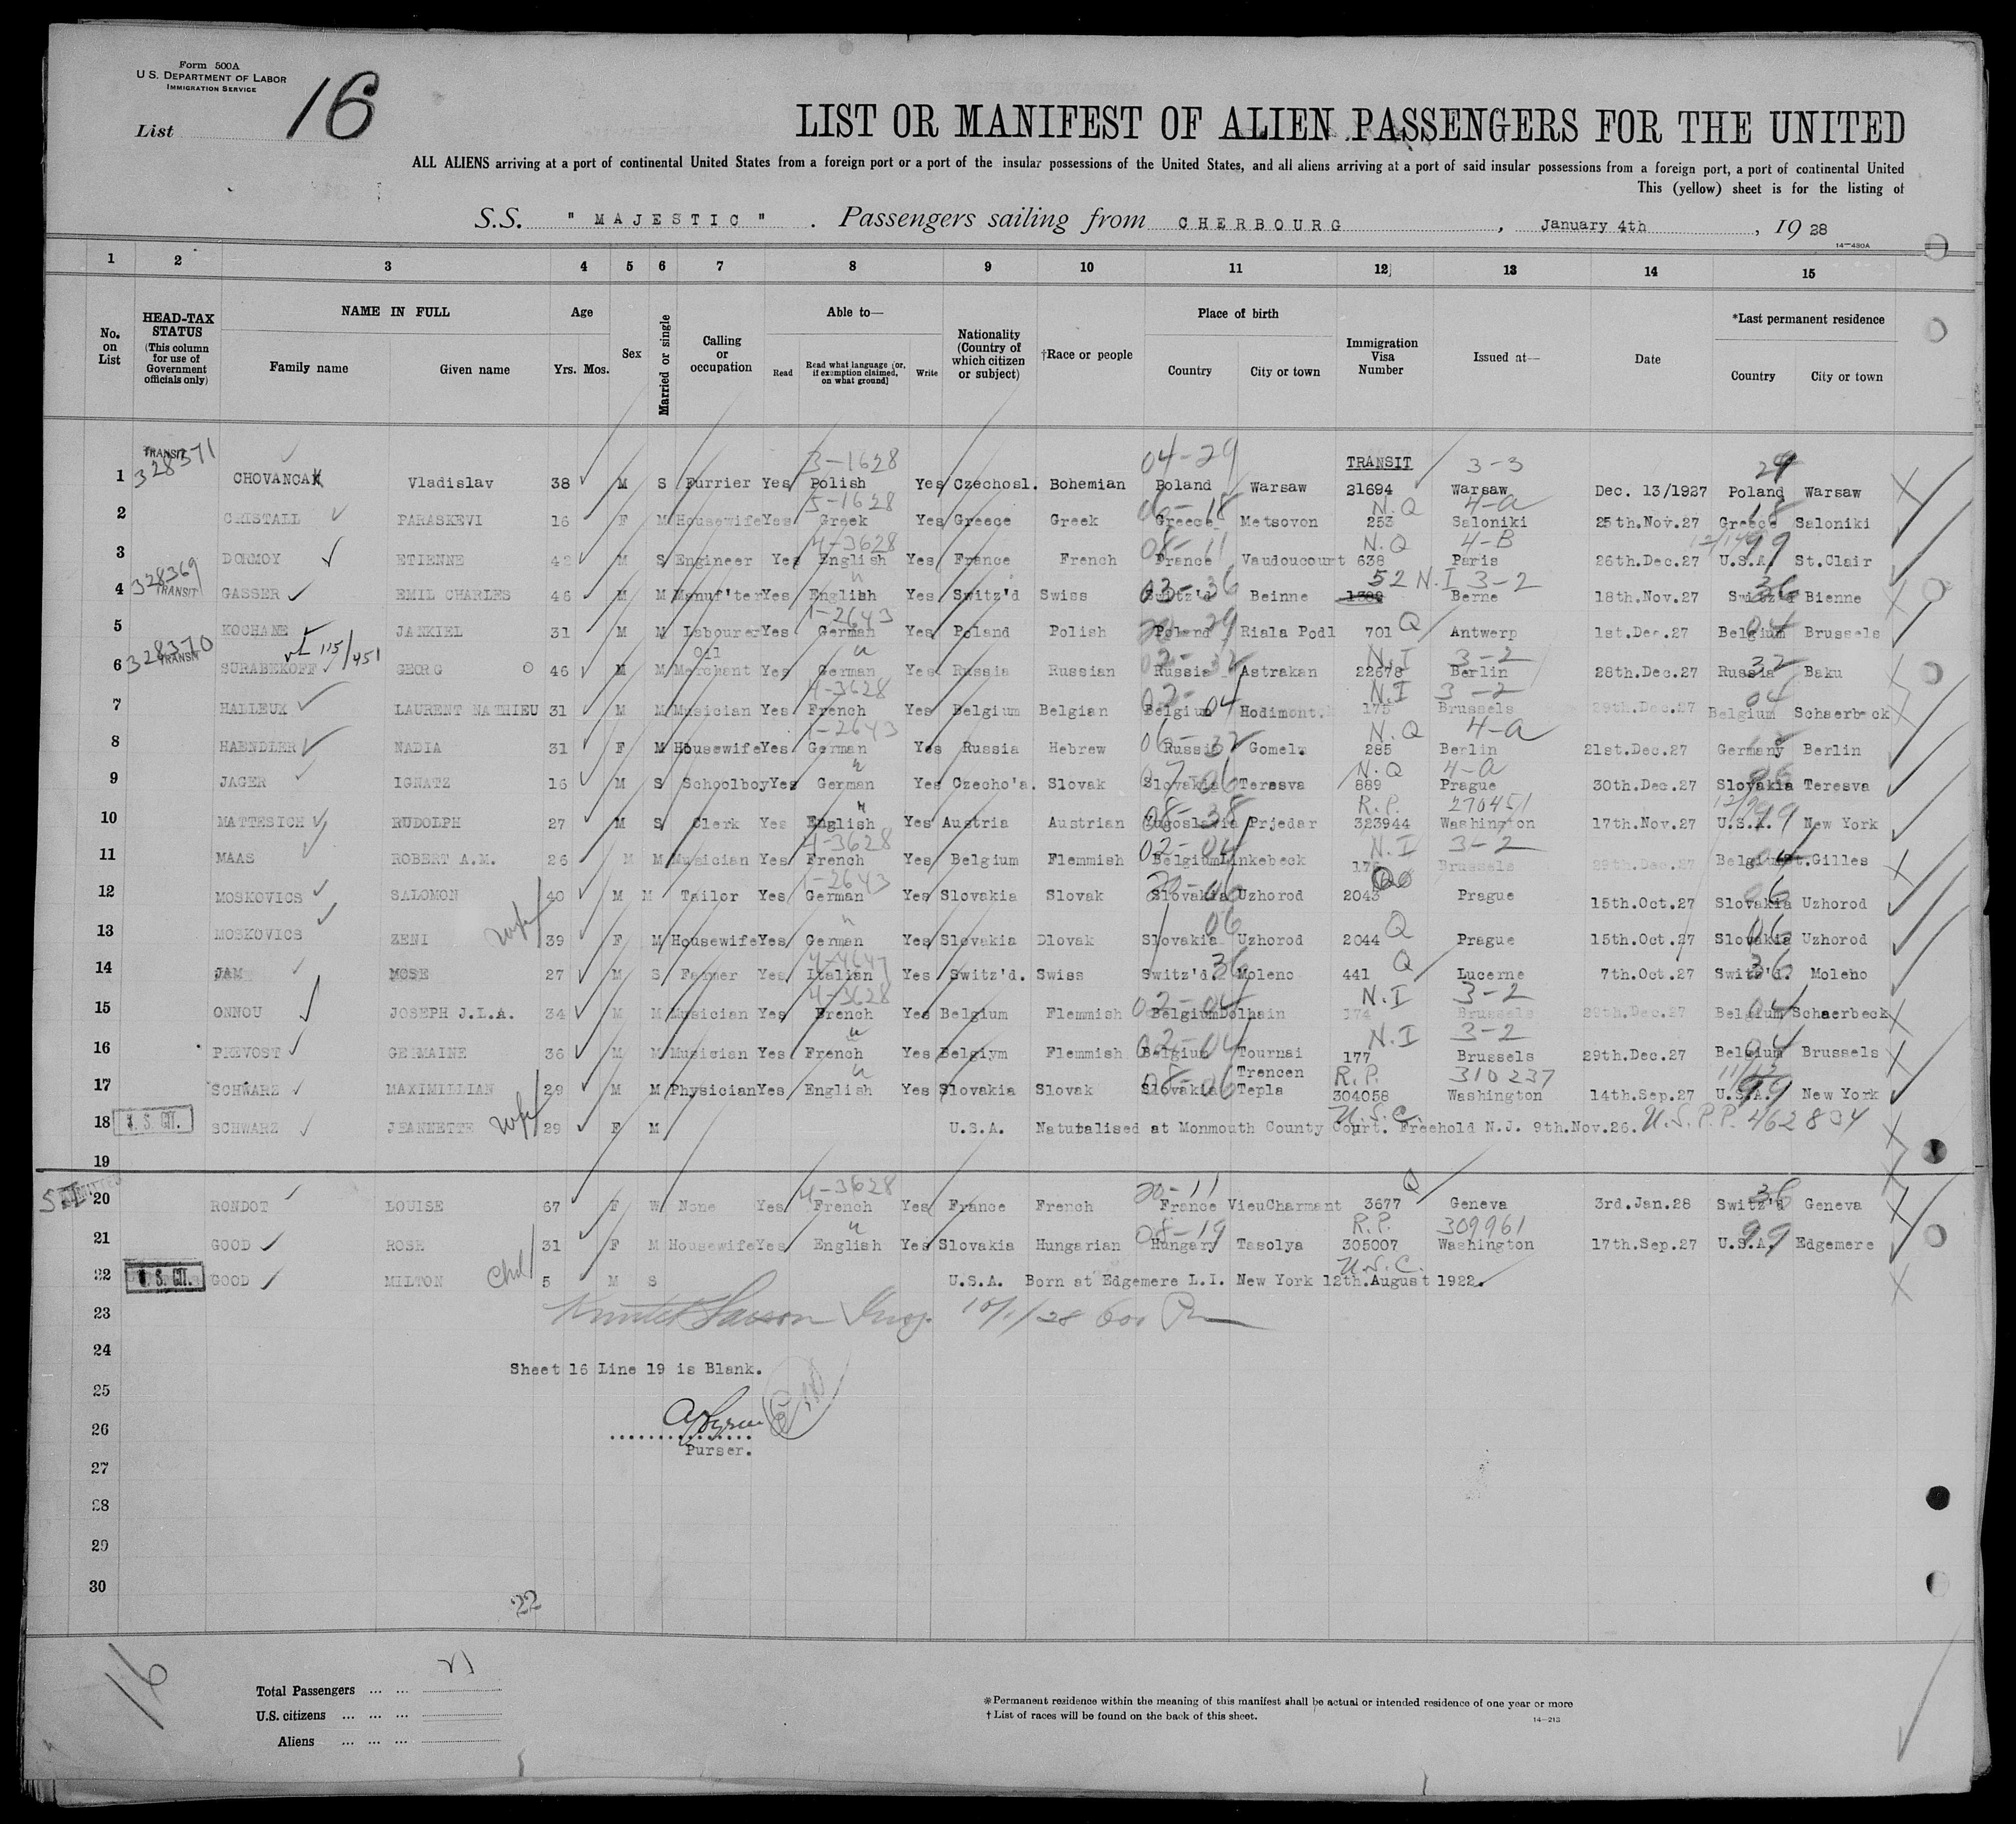 Form 500A
U.S. DEPARTMENT OF LABOR
IMMIGRATION SERVICE
List 16
LIST OR MANIFEST OF ALIEN PASSENGERS FOR THE UNITED
ALL ALIENS arriving at a port of continental United States from a foreign port or a port of the insular possessions of the United States, and all aliens arriving at a port of said insular possessions from a foreign port, a port of continental United
This (yellow) sheet is for the listing of
S.S. " MAJESTIC " . Passengers sailing from CHERBOURG , January 4th , 19 28
14—430A
1 2 3 4 5 6 7 8 9 10 11 12 13 14 15
No. on List
HEAD-TAX STATUS (This column for use of Government officials only)
NAME IN FULL
Family name Given name
Age
Yrs. Mos.
Sex
Married or single
Calling or occupation
Able to—
Read Read what language [or, if exemption claimed, on what ground] Write
Nationality (Country of which citizen or subject)
†Race or people
Place of birth
Country City or town
Immigration Visa Number
Issued at—
Date
*Last permanent residence
Country City or town
TRANSIT 328371 3-1628 04-29 TRANSIT 3-3 29
1 CHOVANCAK Vladislav 38 M S Furrier Yes Polish Yes Czechosl. Bohemian Poland Warsaw 21694 Warsaw Dec. 13/1927 Poland Warsaw
5-1628 06-18 N.Q 4-a 18
2 CRISTALL PARASKEVI 16 F M Housewife Yes Greek Yes Greece Greek Greece Metsovon 253 Saloniki 25th.Nov.27 Greece Saloniki
4-3628 08-11 N.Q 4-B 99
3 DORMOY ETIENNE 42 M S Engineer Yes English Yes France French France Vaudoucourt 638 Paris 26th.Dec.27 U.S.A. St.Clair
328369 TRANSIT " 03-36 52 N.I 3-2 36
4 GASSER EMIL CHARLES 46 M M Manuf'ter Yes English Yes Switz'd Swiss Switz'd Beinne 1380 Berne 18th.Nov.27 Switz'd Bienne
1-2643 29 Q 04
5 KOCHANE JANKIEL 31 M M Labourer Yes German Yes Poland Polish Poland Riala Podl 701 Antwerp 1st.Dec.27 Belgium Brussels
328370 TRANSIT 115/451 Oil " 02-32 N.I 3-2 32
6 SURABEKOFF GEORG 46 M M Merchant Yes German Yes Russia Russian Russia Astrakan 22678 Berlin 28th.Dec.27 Russia Baku
4-3628 02-04 N.I 3-2 04
7 HALLEUX LAURENT MATHIEU 31 M M Musician Yes French Yes Belgium Belgian Belgium Hodimont. 175 Brussels 29th.Dec.27 Belgium Schaerbeck
1-2643 06-32 N.Q 4-a
8 HAENDLER NADIA 31 F M Housewife Yes German Yes Russia Hebrew Russia Gomel. 285 Berlin 21st.Dec.27 Germany Berlin
" 07-06 N.Q 4-a 06
9 JAGER IGNATZ 16 M S Schoolboy Yes German Yes Czecho'a. Slovak Slovakia Teresva 889 Prague 30th.Dec.27 Slovakia Teresva
" 08-38 R.P. 270451 99
10 MATTESICH RUDOLPH 27 M S Clerk Yes English Yes Austria Austrian Yugoslavia Prjedar 323944 Washington 17th.Nov.27 U.S.A. New York
4-3628 02-04 N.I 3-2 04
11 MAAS ROBERT A.M. 26 M M Musician Yes French Yes Belgium Flemmish Belgium Linkebeck 176 Brussels 29th.Dec.27 Belgium St.Gilles
1-2643 20-06 Q 06
12 MOSKOVICS SALOMON 40 M M Tailor Yes German Yes Slovakia Slovak Slovakia Uzhorod 2043 Prague 15th.Oct.27 Slovakia Uzhorod
wife " 06 Q 06
13 MOSKOVICS ZENI 39 F M Housewife Yes German Yes Slovakia Dlovak Slovakia Uzhorod 2044 Prague 15th.Oct.27 Slovakia Uzhorod
4-4647 36 Q 36
14 JAM MOSE 27 M S Farmer Yes Italian Yes Switz'd. Swiss Switz'd. Moleno 441 Lucerne 7th.Oct.27 Switz'd. Moleno
4-3628 02-04 N.I 3-2 04
15 ONNOU JOSEPH J.L.A. 34 M M Musician Yes French Yes Belgium Flemnish Belgium Dolhain 174 Brussels 29th.Dec.27 Belgium Schaerbeck
" 02-04 N.I 3-2 04
16 PREVOST GERMAINE 36 M M Musician Yes French Yes Belgiym Flemmish Belgium Tournai 177 Brussels 29th.Dec.27 Belgium Brussels
" 08-06 Trencen R.P. 310237 99
17 SCHWARZ MAXIMILLIAN 29 M M Physician Yes English Yes Slovakia Slovak Slovakia Tepla 304058 Washington 14th.Sep.27 U.S.A. New York
U. S. CIT. wife U.S.C. U.S.P.P. 462834
18 SCHWARZ JEANNETTE 29 F M U.S.A. Naturalised at Monmouth County Court. Freehold N.J. 9th.Nov.26.
19
S.I. ADMITTED 4-3628 20-11 Q 36
20 RONDOT LOUISE 67 F W None Yes French Yes France French France VieuCharmant 3677 Geneva 3rd.Jan.28 Switz'd Geneva
" 08-19 R.P. 309961 99
21 GOOD ROSE 31 F M Housewife Yes English Yes Slovakia Hungarian Hungary Tasolya 305007 Washington 17th.Sep.27 U.S.A. Edgemere
U. S. CIT. Chd U.S.C.
22 GOOD MILTON 5 M S U.S.A. Born at Edgemere L.I. New York 12th.August 1922.
23 Insp. 10/1/28 600 Pm
24
Sheet 16 Line 19 is Blank.
25
26
Purser.
27
28
29
30
22
16
Total Passengers ... ... 21
U.S. citizens ... ... ...
Aliens ... ... ...
*Permanent residence within the meaning of this manifest shall be actual or intended residence of one year or more
† List of races will be found on the back of this sheet.
14—213